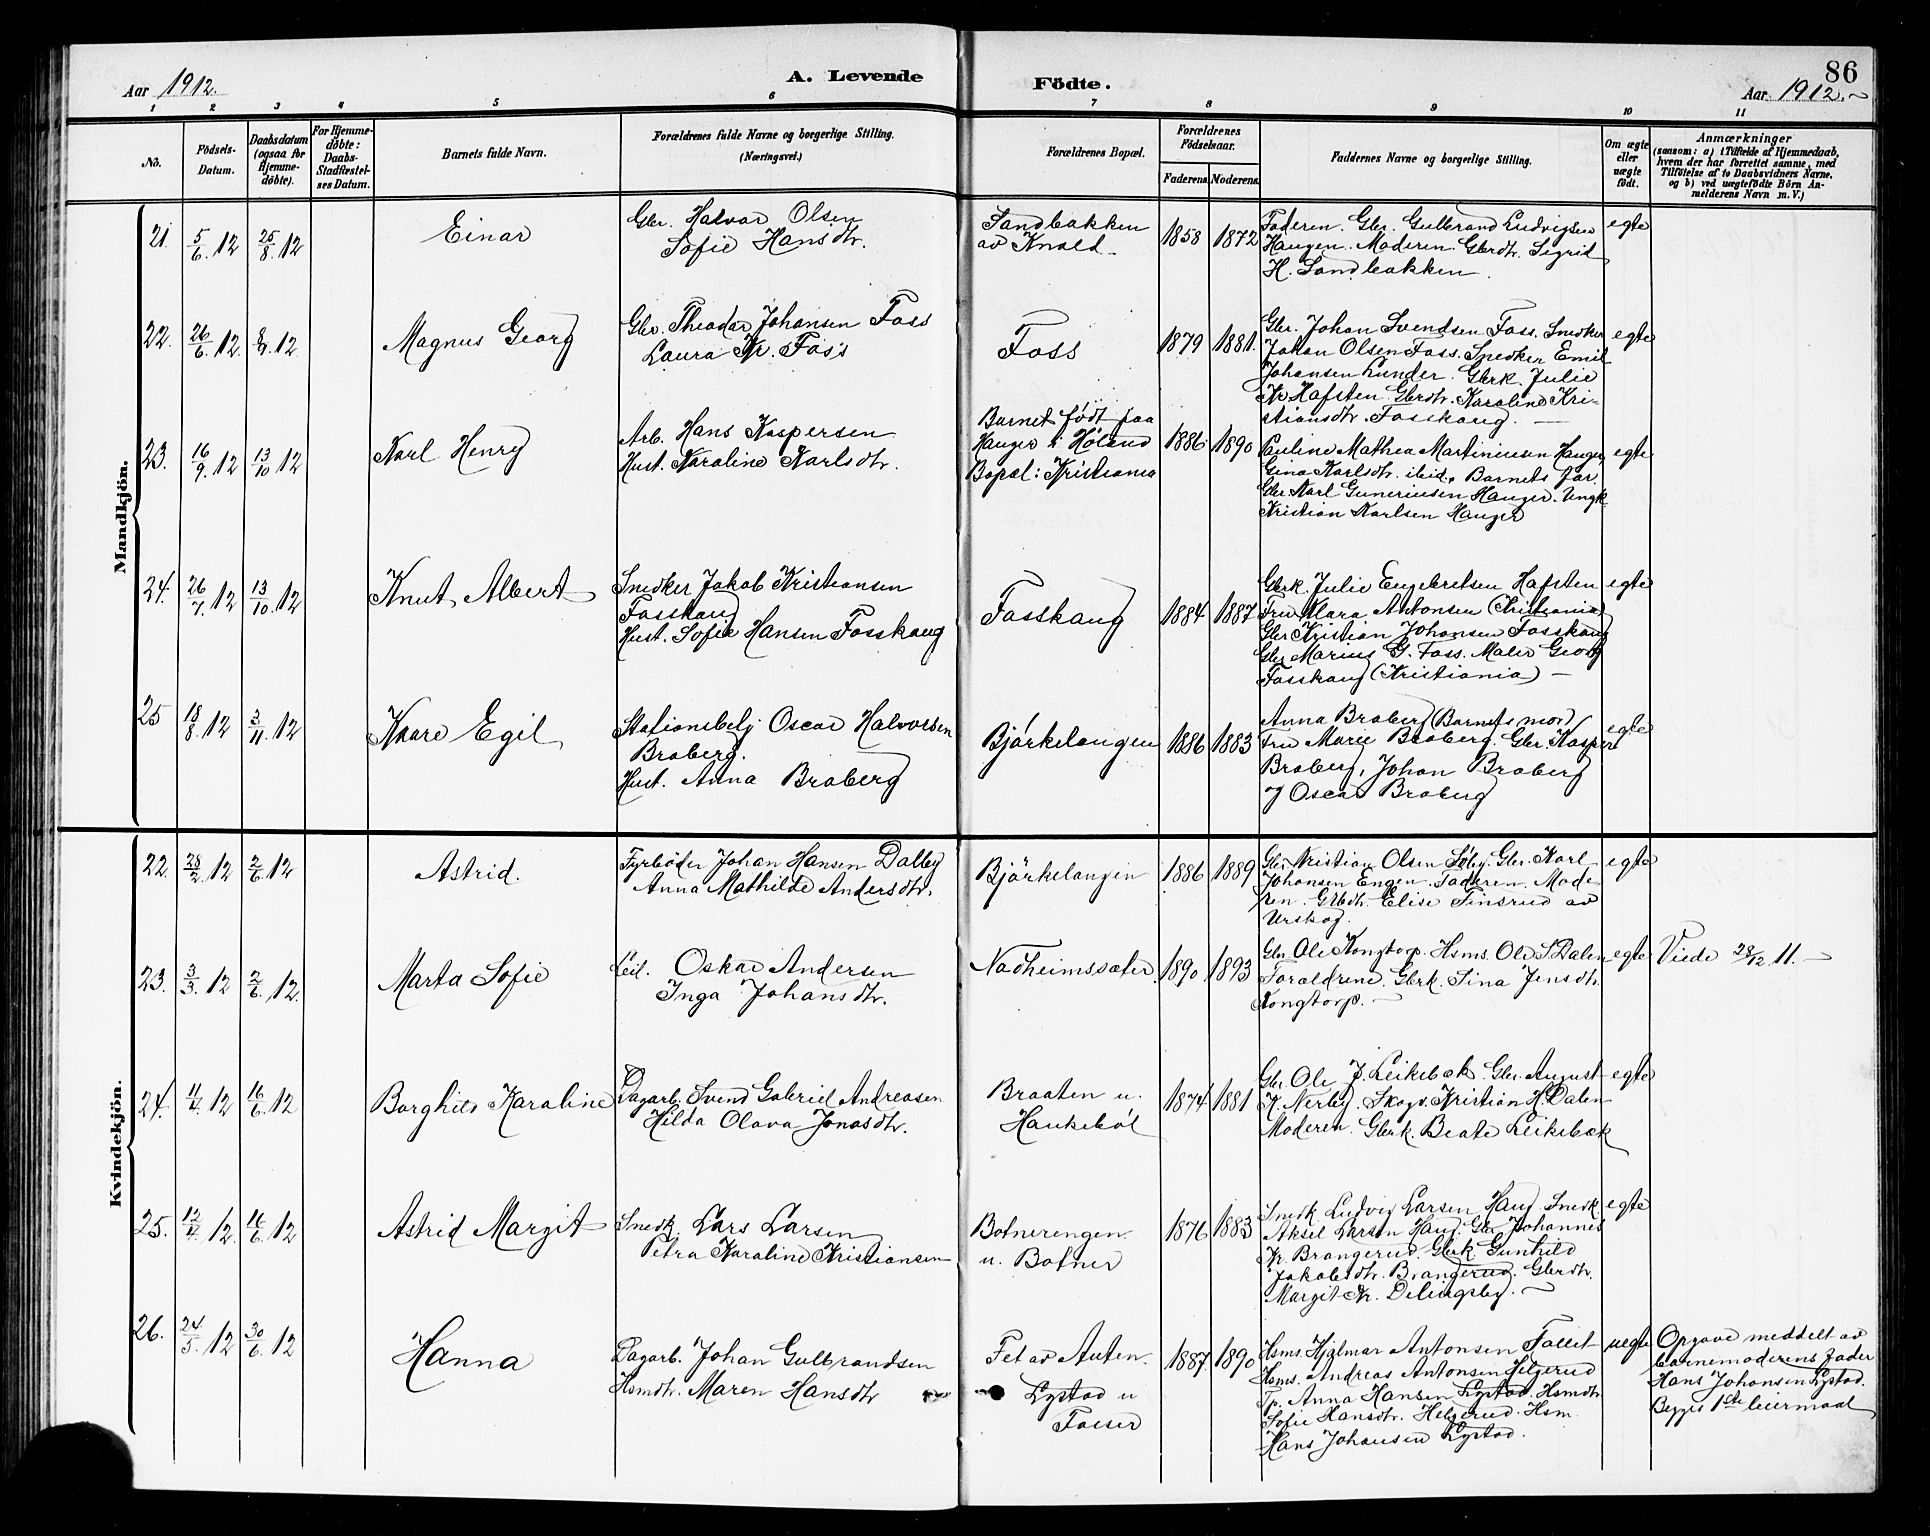 86
Aar 1912.
A. Levende
Födte.
Aar 1912.
1 2 3 4 5 6 7 8 9 10 11
No.
Födsels-
Datum.
Daabsdatum
(ogsaa for
Hjemme-
döbte).
For Hjemme-
döbte:
Daabs-
Stadfæstel-
ses Datum.
Barnets fulde Navn.
Forældrenes fulde Navne og borgerlige Stilling.
(Næringsvei.)
Forældrenes Bopæl.
Forældrenes
Födselsaar.
Faderens.
Moderens.
Faddernes Navne og borgerlige Stilling.
Om ægte
eller
uægte
födt.
Anmærkninger
(saasom: a) i Tilfælde af Hjemmedaab,
hvem der har forrettet samme, med
Tilföielse af to Daabsvidners Navne,
og b) ved uægtefödte Börn An-
melderens Navn m. V.)
Mandkjön.
21. 5/6 12 25/8 12
Einar
Gbr. Halvor Olsen
Sofie Hansdtr.
Sandbakken
av Knold.
1858 1872
Faderen. Gbr. Gulbrand Ludvigsen
Haugen. Moderen. Gbrdtr. Sigrid
H. Sandbakken.
egte
22. 26/6 12. 8/9 12
Magnus Georg
Gbr. Theodor Johansen Foss
Laura Kr. Foss
Foss
1879 1881.
Gbr. Johan Svendsen Foss. Snedker
Johan Olsen Foss. Snedker Emil
Johansen Lunder. Gbrk. Julie
Kr. Hafsten. Gbrdtr. Karoline Kri-
stiansdtr. Fosskaug.
egte
23. 16/9 12 13/10 12
Karl Henry
Arb. Hans Kaspersen
Hust. Karoline Karlsdtr.
Barnet født paa
Hanger i Høland
Bopæl: Kristiania
1886 1890
Pauline Mathea Martiniusen Hanger,
Gina Karlsdtr. ibid. Barnets far.
Gbr. Karl Guneriusen Hanger. Ungk.
Kristian Karlsen Hanger
egte
24. 26/7 12 13/10 12
Knut Albert
Snedker Jakob Kristiansen
Fosskaug
Hust. Sofie Hansen Fosskaug
Fosskaug
1884 1887
Gbrk. Julie Engebretsen Hafsten
Fru Klara Antonsen (Kristiania)
Gbr Kristian Johansen Fosskaug
Gbr Marius G. Foss. Maler Georg
Fosskaug (Kristiania)
egte
25 18/8 12 3/11 12
Kaare Egil
Stationsbetj Oscar Halvorsen
Broberg.
Hust. Anna Broberg
Bjørkelangen
1886 1883
Anna Broberg (Barnets mor)
Fru Marie Broberg. Gbr. Kasper
Broberg, Johan Broberg
og Oscar Broberg
egte
Kvindekjön.
22. 28/2 12 2/6 12
Astrid.
Fyrbøder Johan Hansen Dalby
Anna Mathilde Andersdtr.
Bjørkelangen
1886 1889
Gbr. Kristian Olsen Søby. Gbr. Karl
Johansen Engen. Faderen. Mode-
ren. Gbdtr. Elise Finsrud av
Urskog.
egte
23. 3/3 12 2/6 12.
Marta Sofie
Leil. Oskar Andersen
Inga Johansdtr.
Nadheimssæter
1890 1893
Gbr. Ole Kongtorp. Hsms. Ole S Dalen
Forældrene. Gbrk. Sina Jensdtr.
Kongtorp.
egte
Viede 28/12 11.
24. 11/4 12 16/6 12
Borghild Karoline
Dagarb. Svend Gabriel Andreasen
Hilda Olava Jonasdtr.
Braaten u.
Haukebøl
1874 1881
Gbr. Ole J. Leikebæk. Gbr. August
K. Nerby. Skogv. Kristian H. Dalen
Moderen. Gbrk. Beate Leikebæk
egte
25. 12/4 12. 16/6 12
Astrid Margit
Snedk. Lars Larsen
Petra Karoline Kristiansen
Botnerengen.
u. Botner
1876 1883
Snedk. Ludvig Larsen Haug. Snedk.
Aksel Larsen Haug. Gbr. Johannes
Kr. Brangerud. Gbrk Gunhild
Jakobsdtr. Brangerud. Gbrdtr.
Margit Kr. Delingsby.
egte
26. 24/5 12 30/6 12
Hanna
Dagarb. Johan Gulbrandsen
Hsmdtr. Maren Hansdtr
Fet av Auten.
Lystad u
Fosser
1887. 1890
Hsms Hjalmar Antonsen
Hsms. Andreas Antonsen Helgerud
Tp. Anna Hansen Lystad. Hsmdtr.
Sofie Hansdtr. Helgerud. Hsm.
Hans Johansen Lystad.
uegte
Opgave meddelt av
barnemoderens fader
Hans Johansen Lystad.
Begges 1ste leiermaal